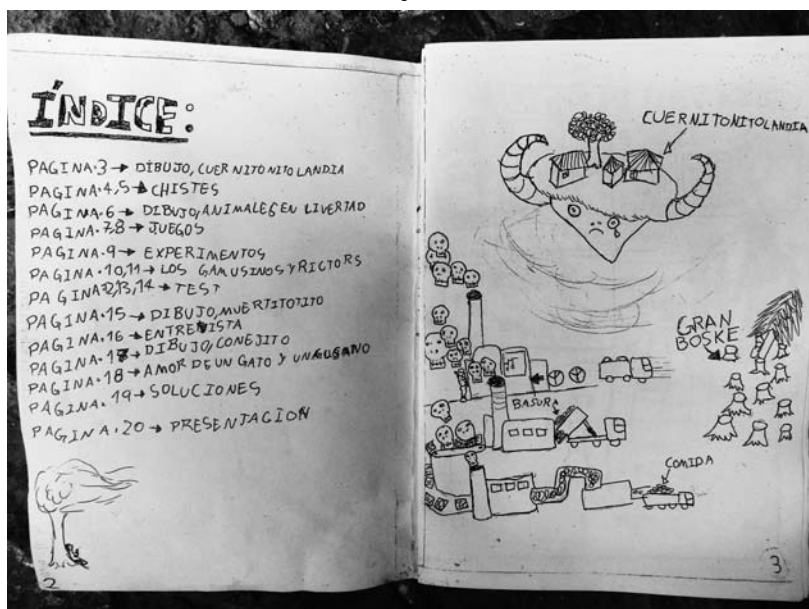 ÍNDICE:
PAGINA.3→ DIBUJO, CUERNITONITOLANDIA
PAGINA.4,5→ CHISTES
PAGINA.6→ DIBUJO, ANIMALES EN LIVERTAD
PAGINA.7,8→ JUEGOS
PAGINA.9→ EXPERIMENTOS
PAGINA.10,11→ LOS GAMUSINOS Y RICTORS
PAGINA12,13,14→TEST
PAGINA.15→ DIBUJO, MUERTITOTITO
PAGINA.16→ ENTREVISTA
PAGINA.17→ DIBUJO, CONEJITO
PAGINA.18→ AMOR DE UN GATO Y UN GUSANO
PAGINA.19→ SOLUCIONES
PAGINA.20→ PRESENTACION
2
CUERNITONITOLANDIA
GRAN
BOSKE
BASURA
COMIDA
3